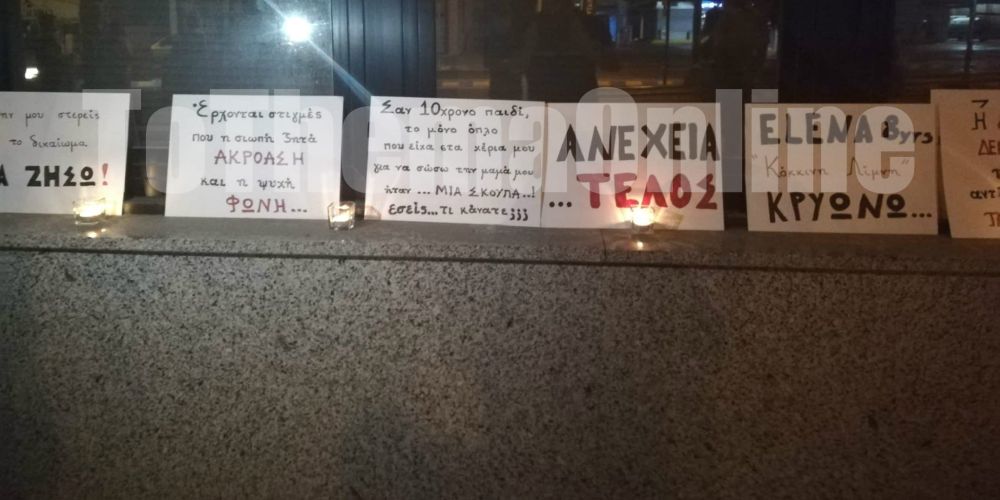 ην μου στερείς
το δικαίωμα
Α ΖΗΣΩ!
"Έρχονται στιγμές
που η σιωπή ζητά
ΑΚΡΟΑΣΗ
και η ψυχή
ΦΩΝΗ...
Σαν 10χρονο παιδί,
το μόνο όπλο
που είχα στα χέρια μου
για να σώσω την μαμά μου
ήταν... ΜΙΑ ΣΚΟΥΠΑ..!
Εσείς... τι κάνατε;;;
ΑΝΕΧΕΙΑ
... ΤΕΛΟΣ
ELENA 8yrs
"Κόκκινη Λίμνη"
ΚΡΥΩΝΩ...
Η
ΔΕΝ
αντ
ToThemaOnline